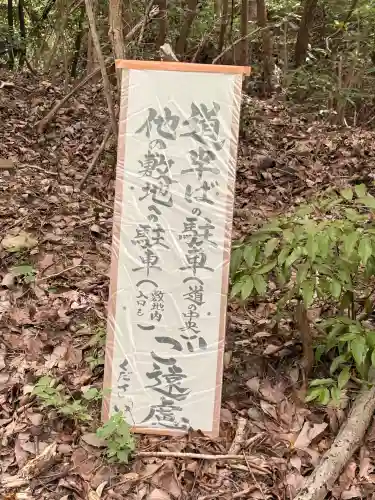 道半ばの駐車(道中央)
他の敷地の駐車(敷地内
入口も)
ご遠慮
ください